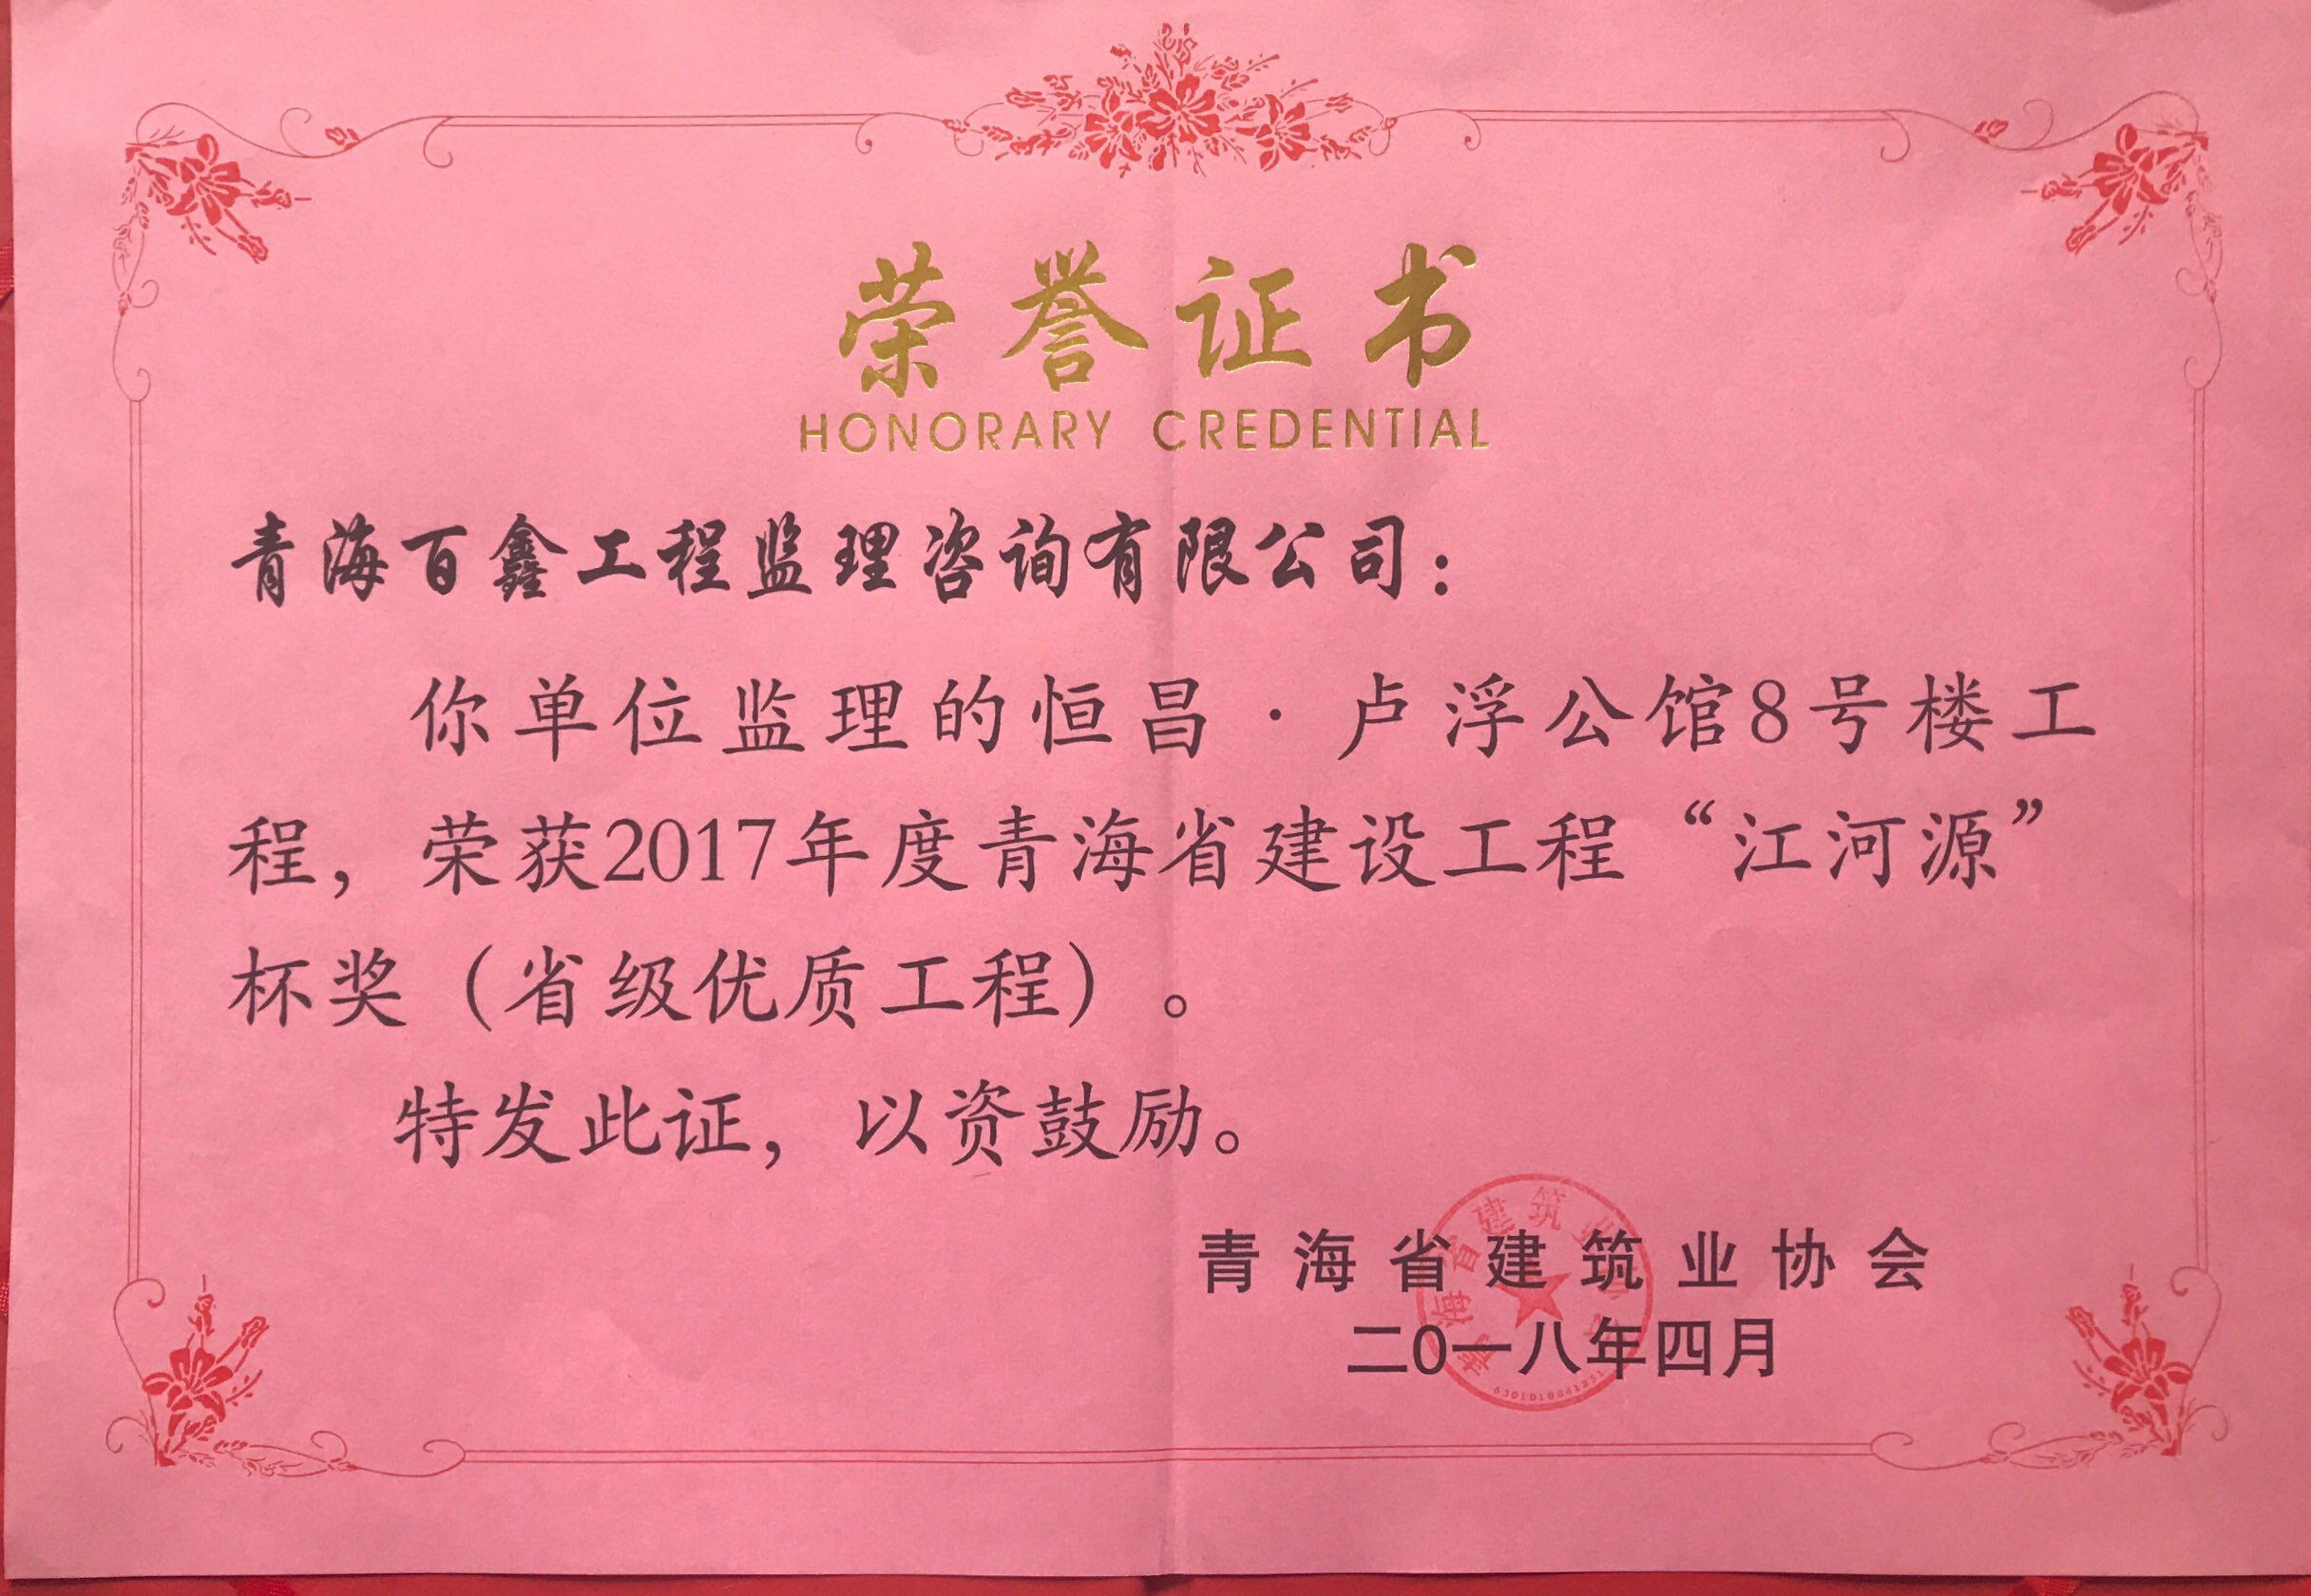 荣誉证书
HONORARY CREDENTIAL
青海百鑫工程监理咨询有限公司：
你单位监理的恒昌·卢浮公馆8号楼工
程，荣获2017年度青海省建设工程“江河源”
杯奖（省级优质工程）。
特发此证，以资鼓励。
青海省建筑业协会
二0一八年四月